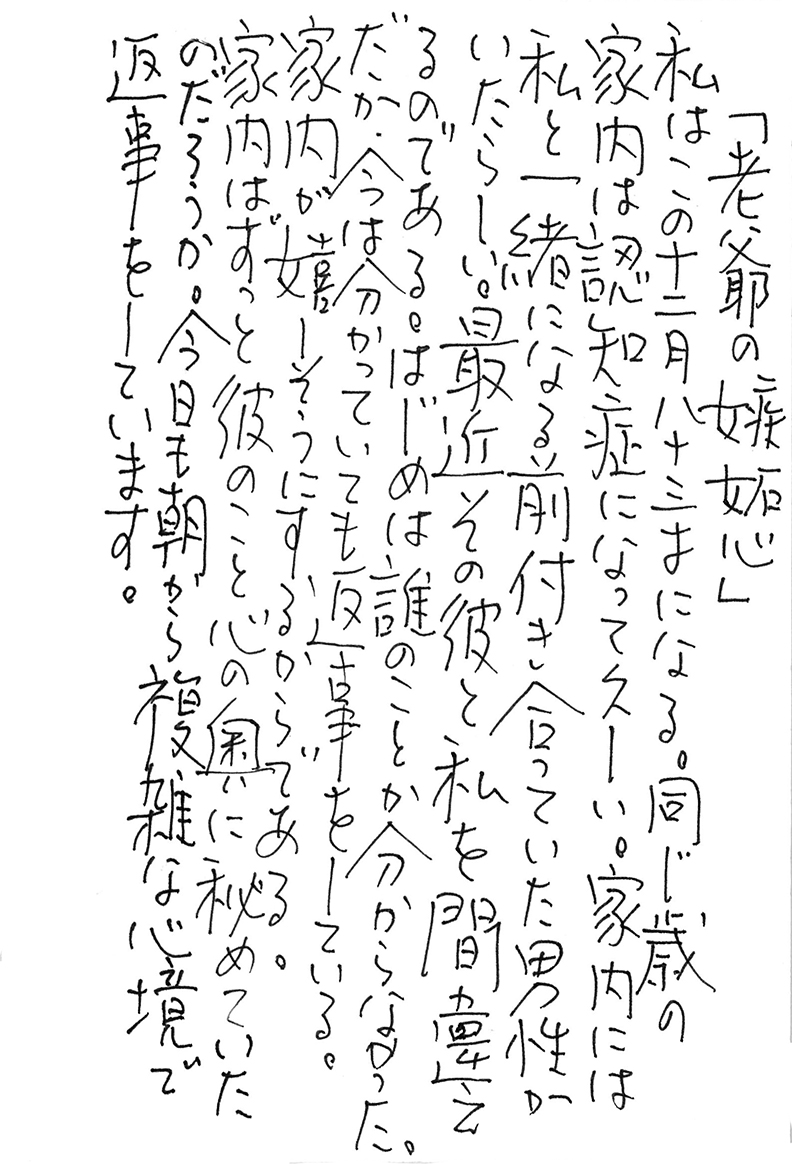 「老父爺の嫉妬心」
私はこの十二月八十三才になる。同じ歳の
家内は認知症になって久しい。家内には
私と一緒になる前付き合っていた男性が
いたらしい。最近その彼と私を間違え
るのである。はじめは誰のことか分からなかった。
だが、今は分かっていても返事をしている。
家内が嬉しそうにするからである。
家内はずっと彼のこと心の奥に秘めていた
のだろうか。今日も朝から複雑な心境で
返事をしています。